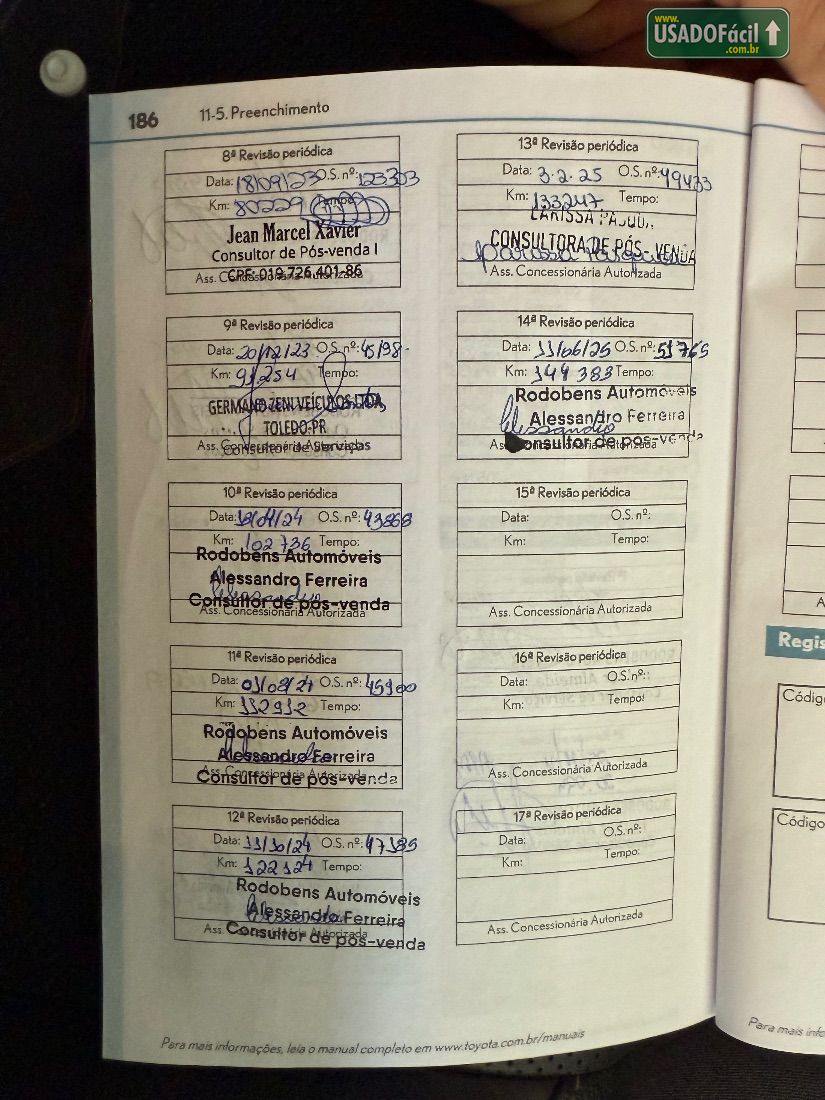 www.
USADOFácil
.com.br
186 11-5. Preenchimento
8ª Revisão periódica
Data: 18/09/23 O.S. nº: 123303
Km: 80229 Tempo:
Jean Marcel Xavier
Consultor de Pós-venda I
CPF: 019.726.401-86
Ass. Concessionária Autorizada
9ª Revisão periódica
Data: 20/12/23 O.S. nº: 45198-
Km: 91254 Tempo:
GERMANO ZENI VEÍCULOS LTDA
TOLEDO-PR
Ass. Concessionária Autorizada
Consultor de Serviços
10ª Revisão periódica
Data: /04/24 O.S. nº: 43868
Km: 102736 Tempo:
Rodobens Automóveis
Alessandro Ferreira
Consultor de pós-venda
Ass. Concessionária Autorizada
11ª Revisão periódica
Data: 01/08/24 O.S. nº: 45900
Km: 112912 Tempo:
Rodobens Automóveis
Alessandro Ferreira
Consultor de pós-venda
Ass. Concessionária Autorizada
12ª Revisão periódica
Data: 11/10/24 O.S. nº: 47185
Km: 122124 Tempo:
Rodobens Automóveis
Alessandro Ferreira
Consultor de pós-venda
Ass. Concessionária Autorizada
13ª Revisão periódica
Data: 3.2.25 O.S. nº: 49433
Km: 133247 Tempo:
LARISSA
CONSULTORA DE PÓS - VENDA
Ass. Concessionária Autorizada
14ª Revisão periódica
Data: 11/06/25 O.S. nº: 51765
Km: 144383 Tempo:
Rodobens Automóveis
Alessandro Ferreira
Alessandro
Consultor de pós-venda
Ass. Concessionária Autorizada
15ª Revisão periódica
Data: O.S. nº:
Km: Tempo:
Ass. Concessionária Autorizada
16ª Revisão periódica
Data: O.S. nº:
Km: Tempo:
Ass. Concessionária Autorizada
17ª Revisão periódica
Data: O.S. nº:
Km: Tempo:
Ass. Concessionária Autorizada
Para mais informações, leia o manual completo em www.toyota.com.br/manuais
A
Regis
Códig
Código
Para mais info